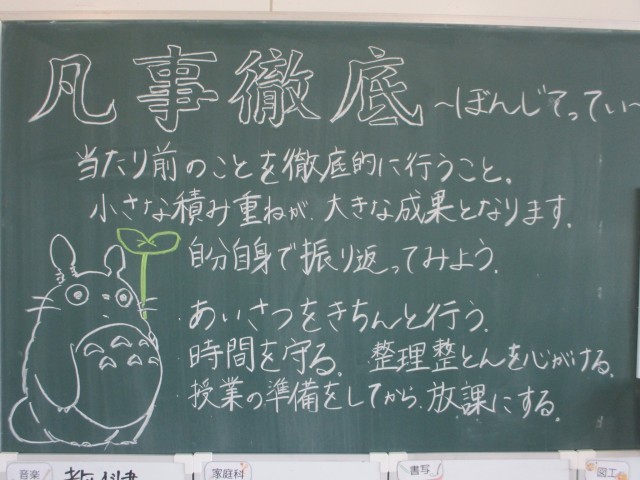 凡事徹底 ~ぼんじてってい~
当たり前のことを徹底的に行うこと。
小さな積み重ねが、大きな成果となります。
自分自身で振り返ってみよう。
あいさつをきちんと行う。
時間を守る。 整理整とんを心がける。
授業の準備をしてから、放課にする。
音楽 家庭科 書写 図工